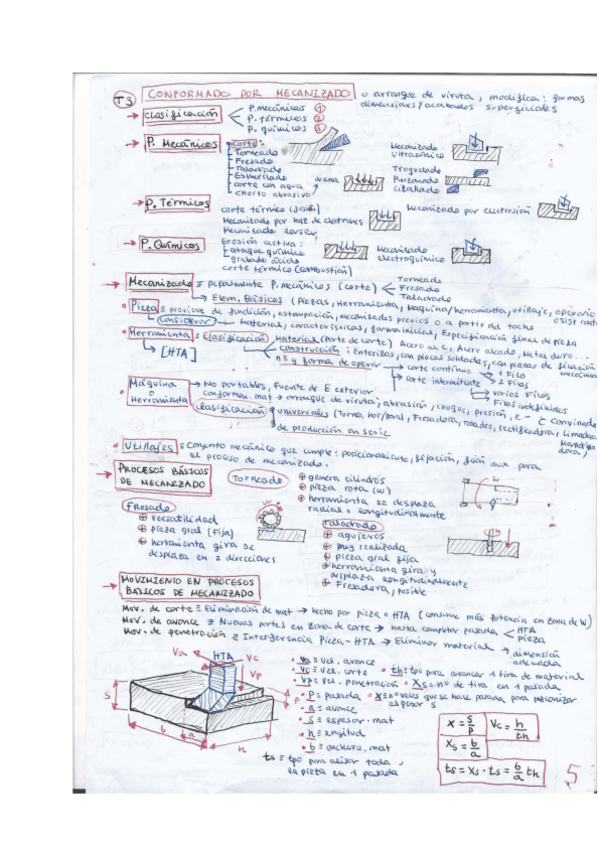 T3 CONFORMADO POR MECANIZADO o arranque de viruta, modifica: formas
dimensiones/acabados superficiales
→ Clasificación P. mecánicos 1
P. térmicos 2
P. químicos 3
→ P. Mecánicos
Corte:
Torneado
Fresado
Taladrado
Esmerilado
Corte con agua
chorro abrasivo
arena
Mecanizado
ultrasónico
Troquelado
Punzonado
Cizallado
→ P. Térmicos
Corte térmico
Mecanizado por haz de electrones
Mecanizado láser
Mecanizado por electroerosión
→ P. Químicos
Erosión activa:
ataque químico
grabado ácido
corte térmico (combustión)
Mecanizado
electroquímico
→ Mecanizado ≡ P. mecánicos (corte)
Torneado
Fresado
Taladrado
→ Elem. Básicos (Piezas, Herramienta, Máquina/herramienta, utillaje, operario
Pieza ≡ proviene de fundición, estampación, mecanizados previos o a partir de tocho
Considerar → Material, características, forma inicial, Especificación final de pieza
Herramienta ≡ Clasificación Material (Parte de corte) Acero al C, Acero aleado, Metal duro...
→ [HTA]
construcción: Enterizas, con placas soldadas, con placas de fijación
mecánica
nº y forma de operar → corte continuo → 1 Filo
corte intermitente → 2 Filos
varios Filos
Filos indefinidos
Máquina
o
Herramienta
→ No portables, fuente de E exterior
conforman. mat → arranque de viruta, abrasión, choque, presión, e-
Clasificación universales (Torno, Fresadora, taladro, rectificadora, Limadora
de producción en serie
Utillajes ≡ Conjunto mecánico que cumple: posicionamiento, fijación, guía aux para
el proceso de mecanizado.
→ PROCESOS BÁSICOS
DE MECANIZADO
Torneado
⊕ genera cilindros
⊕ pieza rota (w)
⊕ herramienta se desplaza
radial ≡ longitudinalmente
w
Fresado
⊕ versatilidad
⊕ pieza gral (Fija)
⊕ herramienta gira se
desplaza en 2 direcciones
w
Taladrado
⊕ agujeros
⊕ muy realizada
⊕ pieza gral fija
⊕ herramienta gira y
desplaza longitudinalmente
⊕ Fresadora, posible
→ MOVIMIENTO EN PROCESOS
BÁSICOS DE MECANIZADO
Mov. de corte ≡ Eliminación de mat → hecho por pieza o HTA (consume más potencia en zona de W)
Mov. de avance ≡ Nuevas partes en zona de corte → hasta completar pasada HTA
pieza
Mov. de penetración ≡ Interferencia Pieza-HTA → Eliminar material → dimensión
adecuada
Va HTA Vc
Vp
S
P
b
a
h
Va ≡ vel. avance
Vc ≡ vel. corte
th ≡ tpo para avanzar 1 tira de material
Vp ≡ vel. penetración
Xs ≡ nº de tira en 1 pasada
P ≡ pasada
X ≡ nº veces que se hace pasada para mecanizar
espesor s
a ≡ avance
S ≡ espesor. mat
h ≡ longitud
b ≡ anchura. mat
ts ≡ tpo para alisar toda
la pieza en 1 pasada
X = S/P
Vc = h/th
Xs = b/a
ts = Xs · ts = b/a th
5